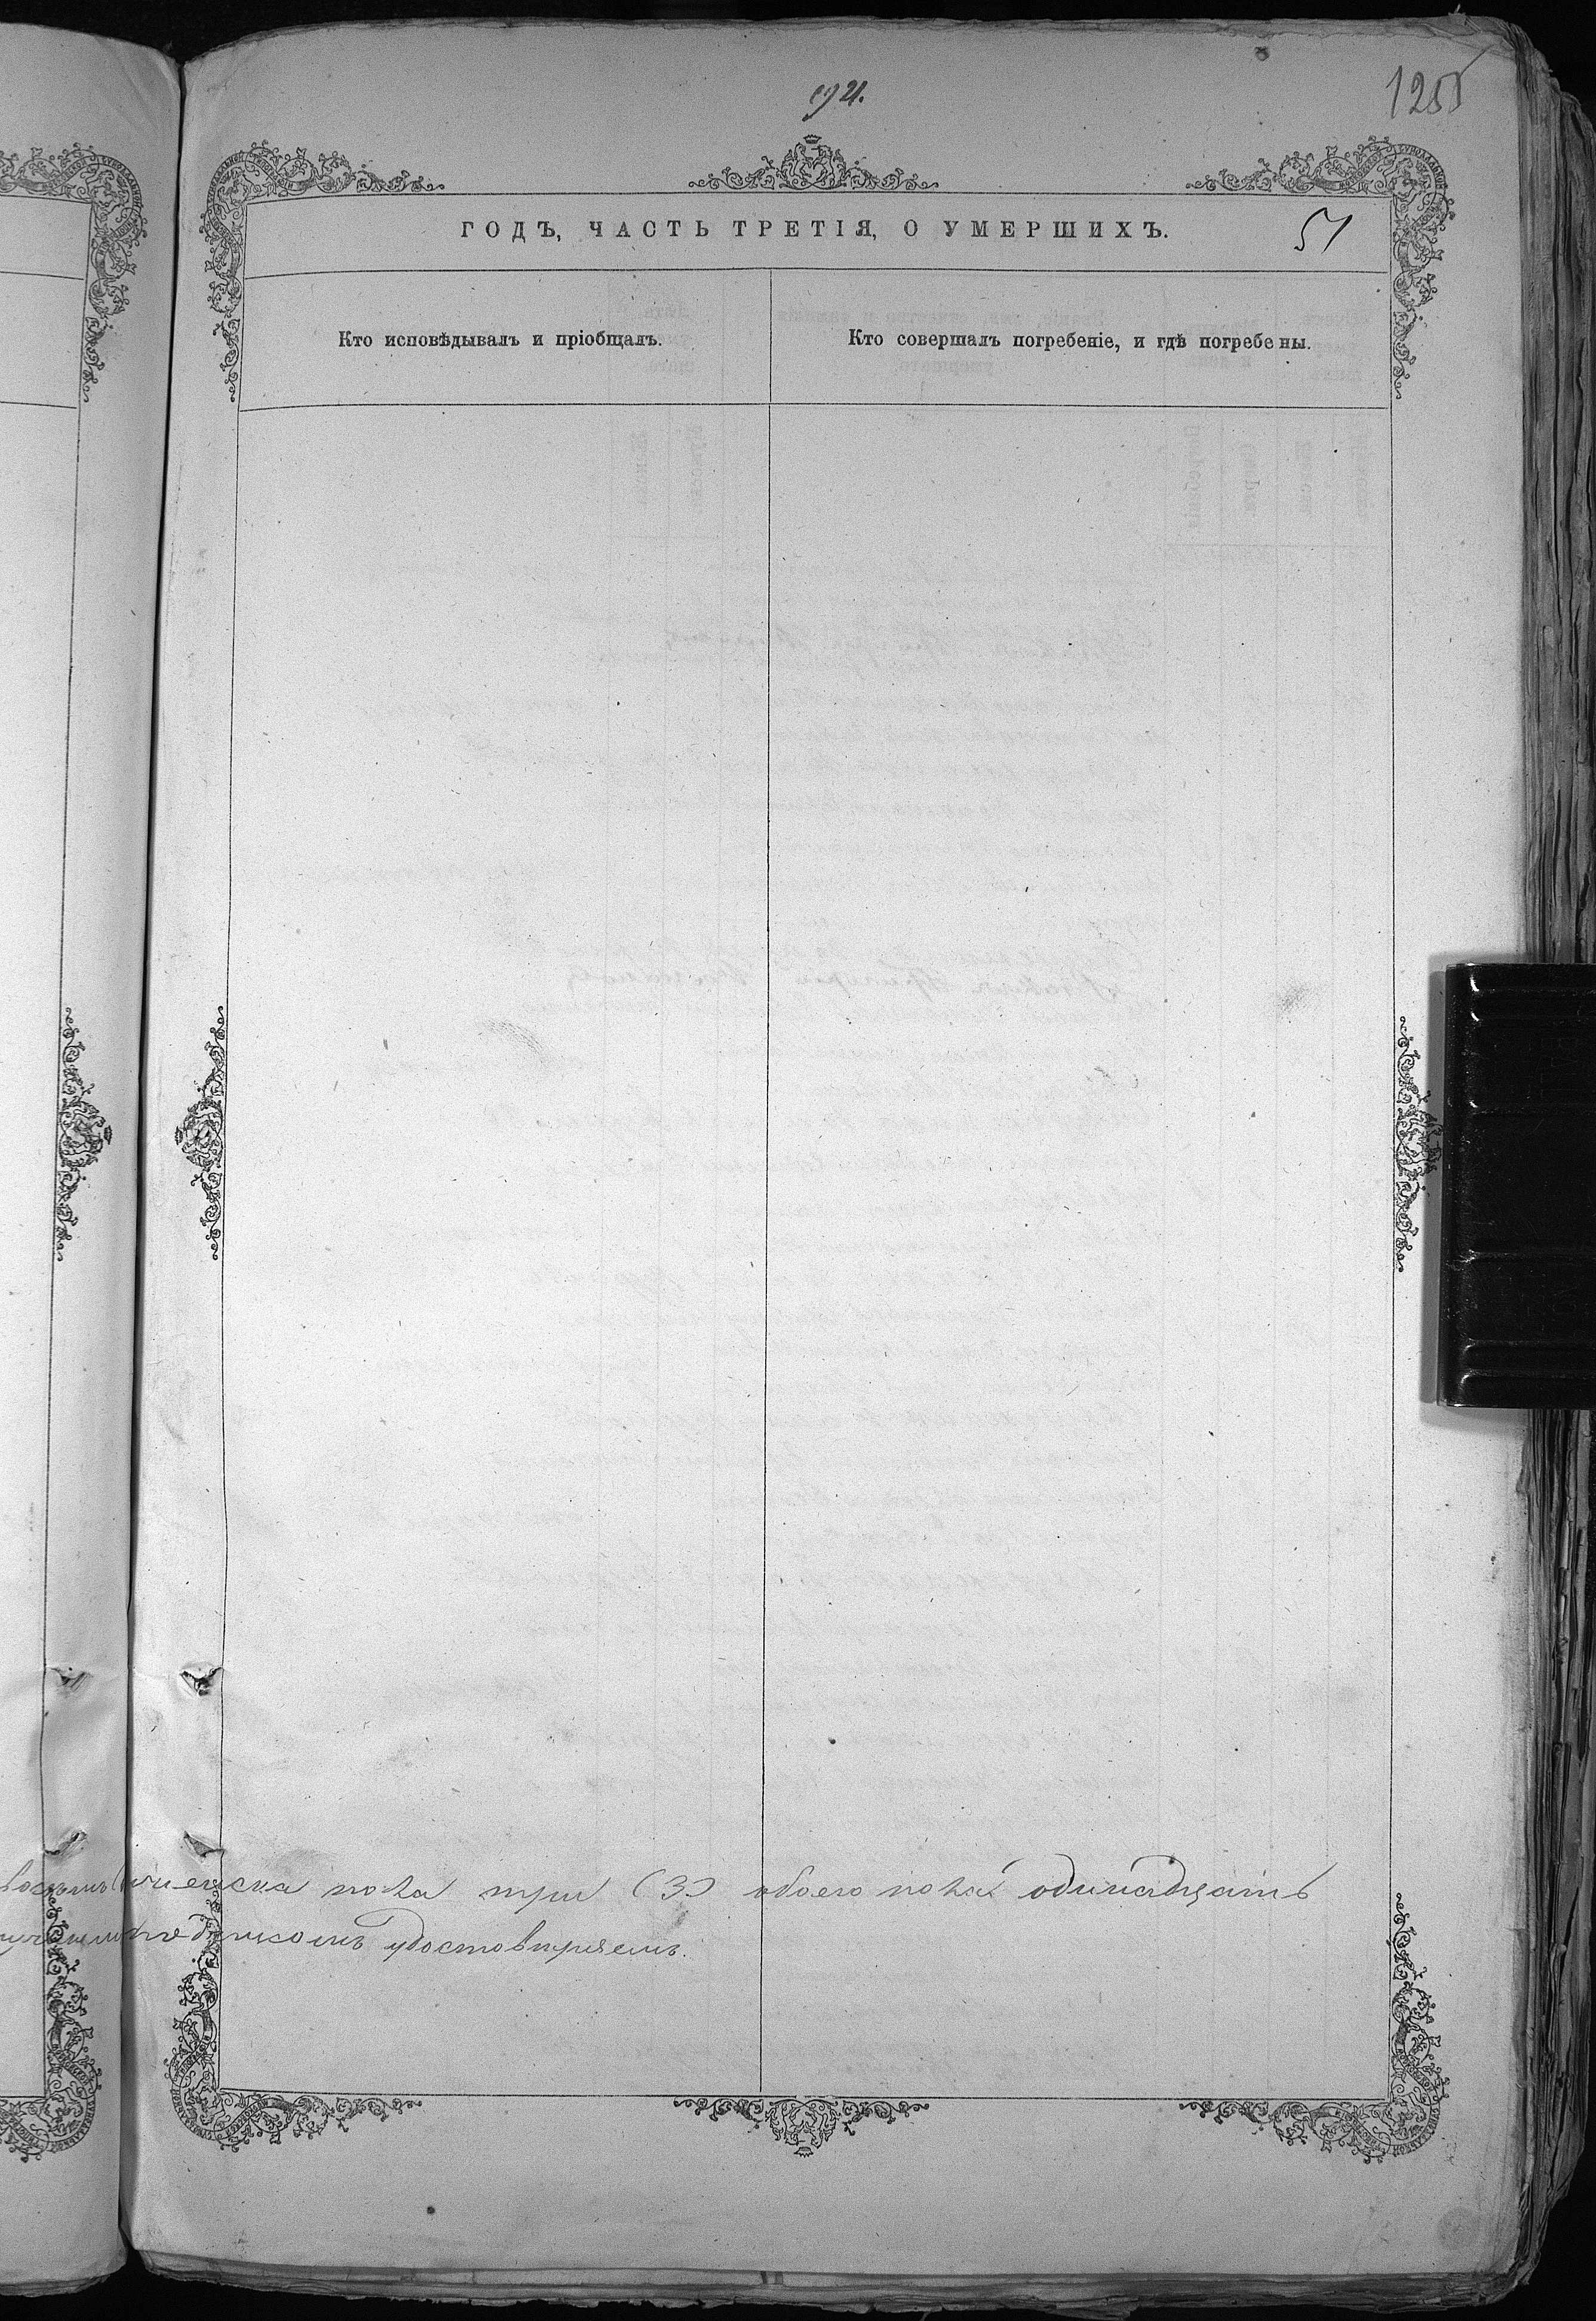 1255
ГОДЪ, ЧАСТЬ ТРЕТІЯ, О УМЕРШИХЪ.
51
Кто исповѣдывалъ и пріобщалъ.
Кто совершалъ погребеніе, и гдѣ погребены.
восемь женска пола три (3) обоего пола одинадцать
удостовѣряемъ.